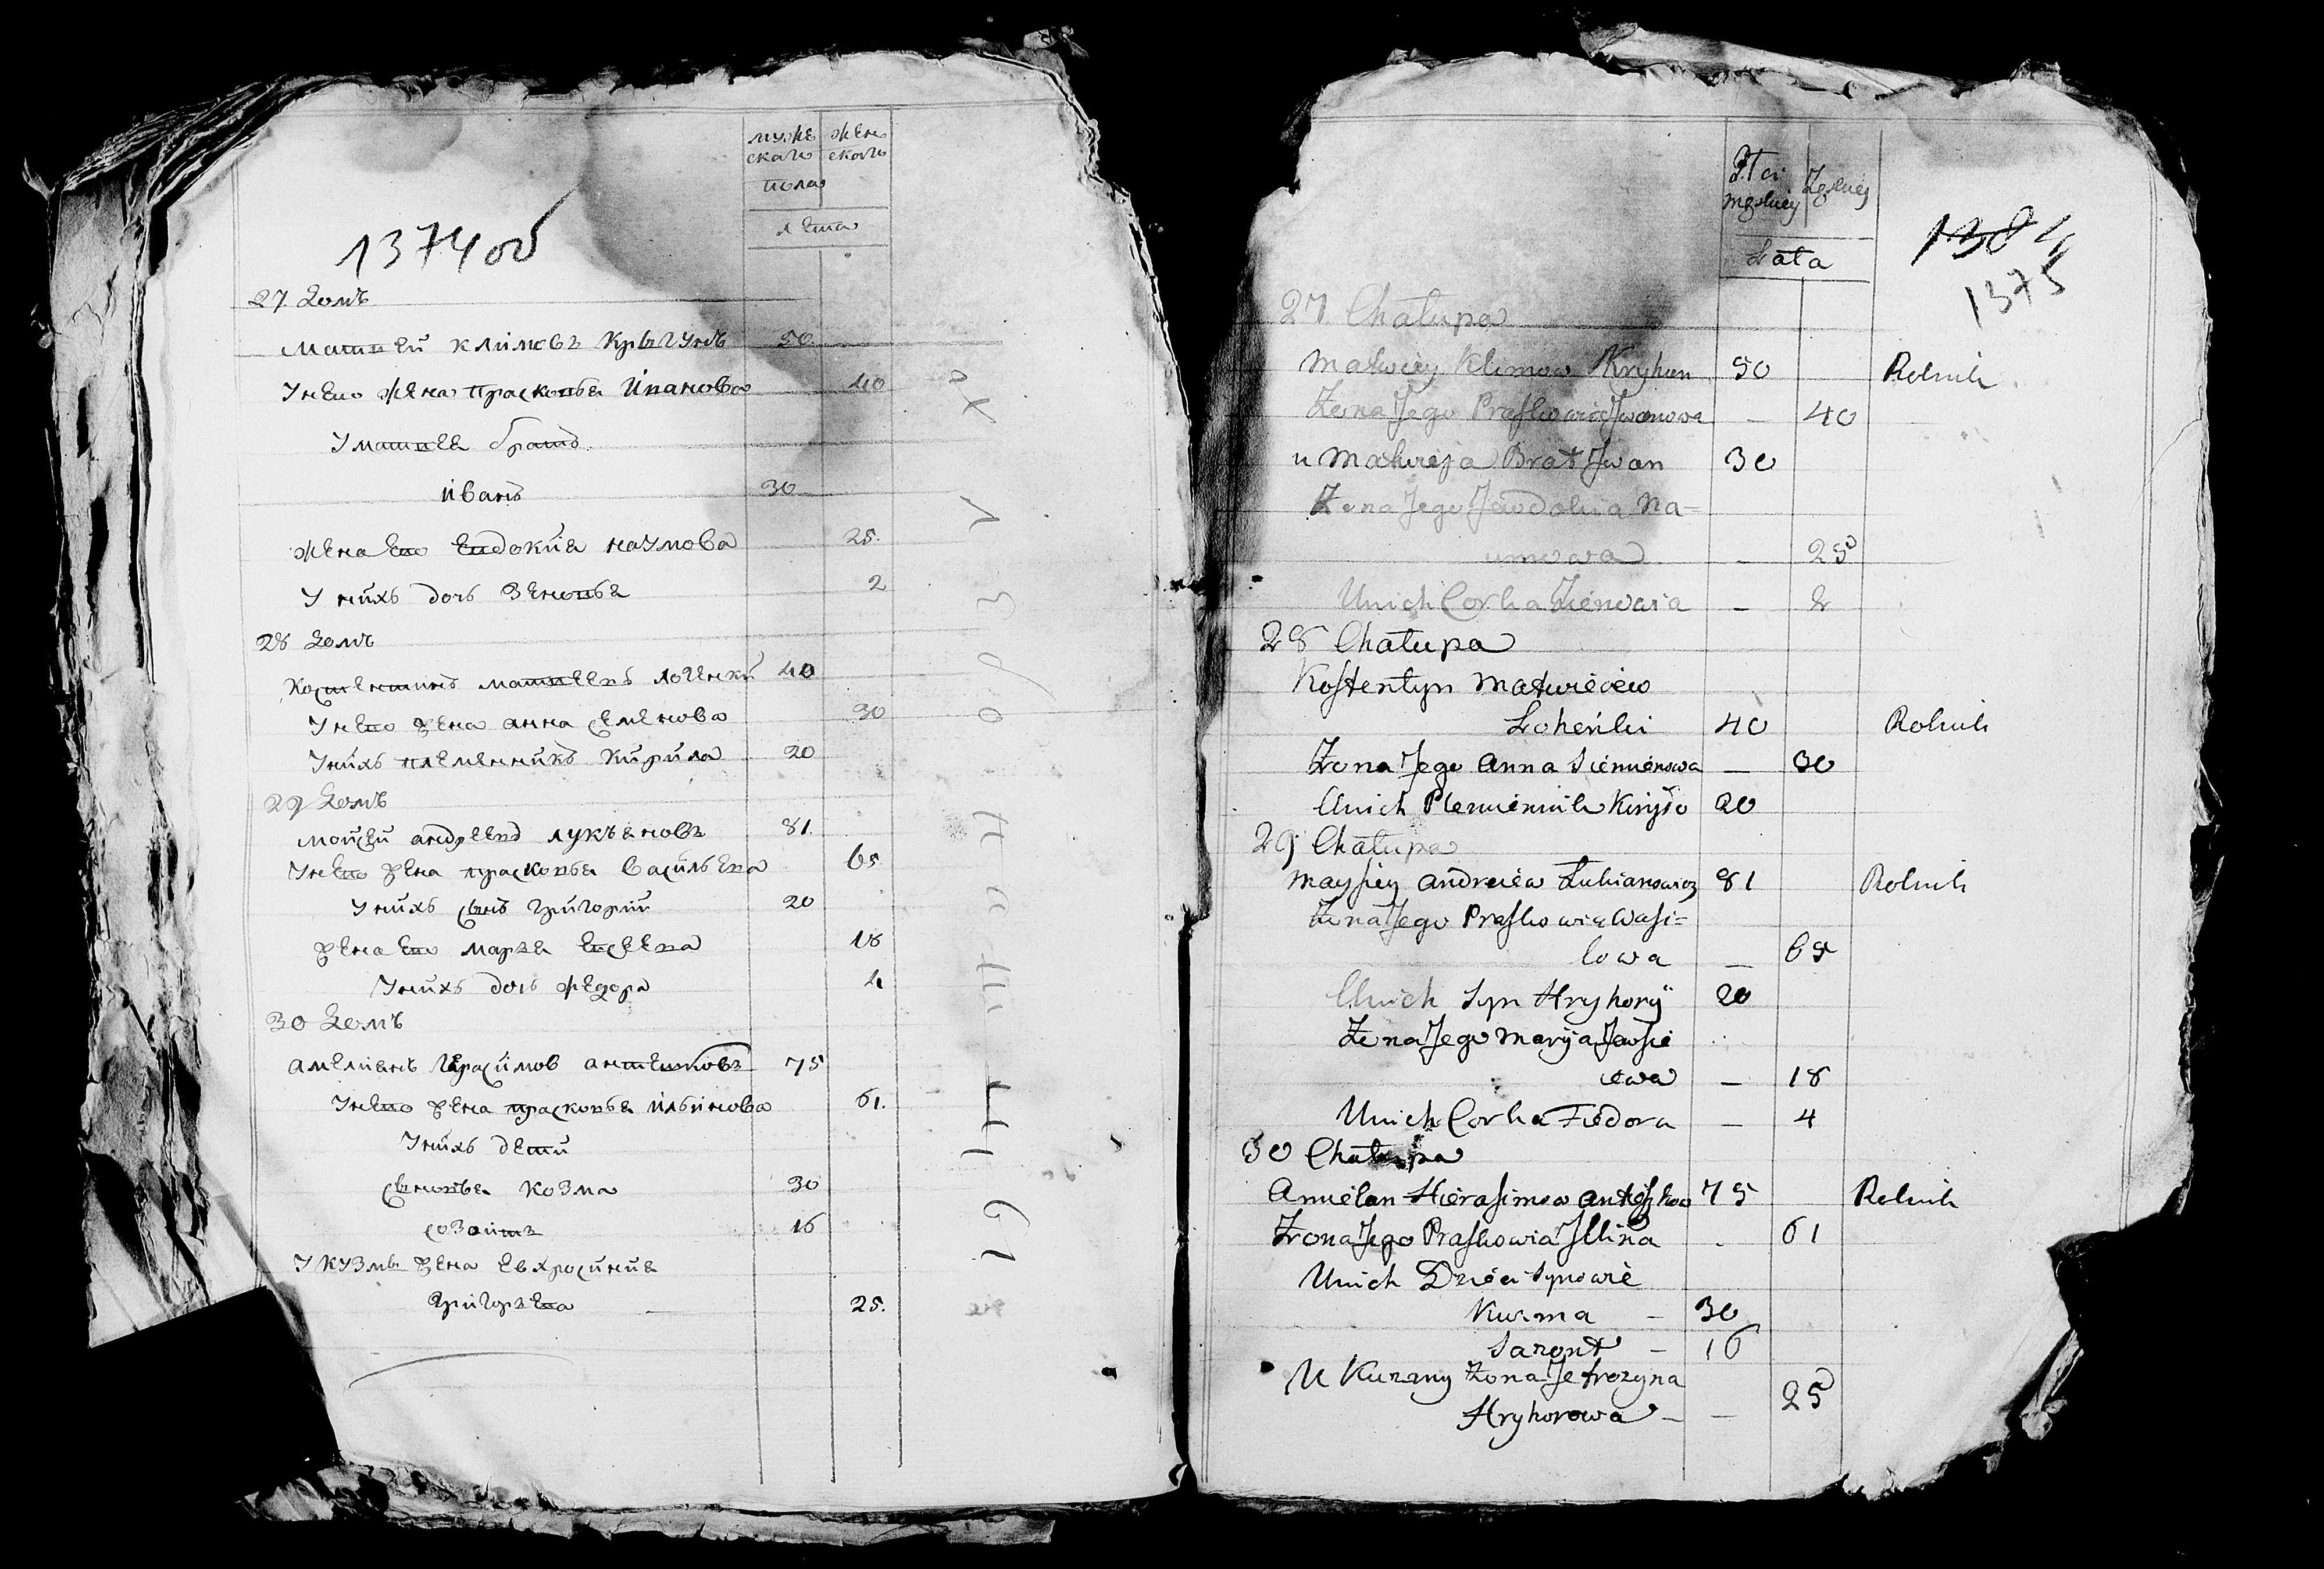 мужескаго женскаго
пола
лета
1374об
27 Домъ
Матвей Климовъ Крыгунъ 50
У него жена Прасковья Иванова 40
У Матвея братъ
Иванъ 30
жена его Евдокия Наумова 25.
У нихъ дочь Зеновья 2
28 Домъ
Костентинъ Матвеевъ Логенки 40
У него жена Анна Семенова 30
У нихъ племенникъ Кирила 20
29 Домъ
Мойсей Андреевъ Лукъяновъ 81.
У него жена Прасковья Васильева 65
У нихъ сынъ Григорий 20
жена его Марья Евсеева 18
У нихъ дочь Федора 4
30 Домъ
Амелиянъ Герасимов Антешковъ 75
У него жена Прасковья Ильинова 61.
У нихъ дети
сыновья Козма 30
Созонтъ 16
У Кузмы жена Евхросиния
Григорьева 25.
хлебо
Płci
męskiey Żęskiey
Lata
1384
1375
27 Chałupa
Matwiey Klimow Kryhun 50 Rolnik
Żona Jego Praskowia Jwanowa — 40
u Matwieja Brat Jwan 30
Żona Jego Jewdokia Na=
umowa — 25
Unich Corka Zienowia — 2
28 Chałupa
Kostentyn Matwieiew
Loheńki 40 Rolnik
Żona Jego Anna Siemienowa — 30
Unich Plemiennik Kiryło 20
29 Chałupa
Maysiey Andreiew Łukianowicz 81 Rolnik
Żona Jego Praskowia Wasi=
lowa — 65
Unich Syn Hryhory 20
Żona Jego Marya Jewsie
iewa — 18
Unich Corka Fiedora — 4
30 Chałupa
Amielan Hierasimow Antieszkow 75 Rolnik
Żona Jego Praskowia Jllina . 61
Unich Dzieci Synowie
Kuzma — 30
Sazont — 16
U Kuzmy Żona Jefrozyna
Hryhorowa — — 25